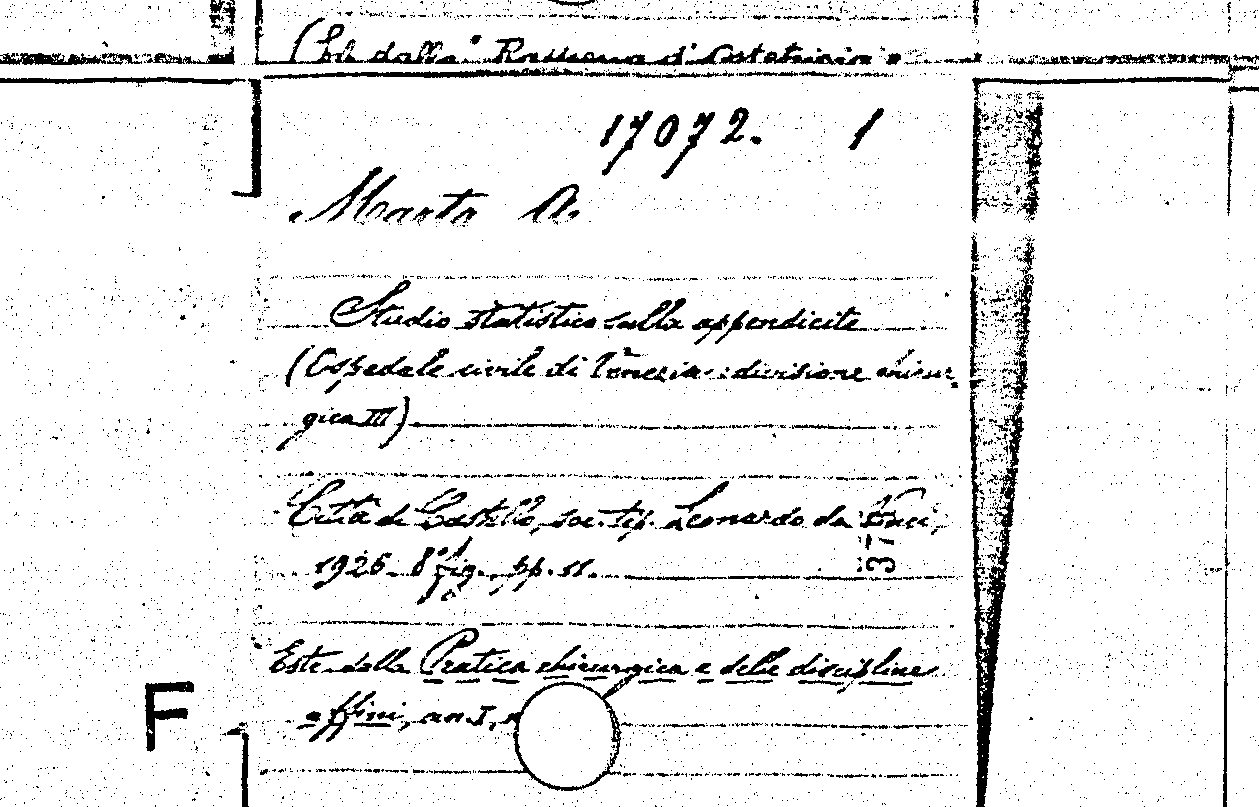 (Ed. dalla "Rassegna d'Ostetricia e
17072. 1
Marta A.
Studio statistico sulla appendicite
(Ospedale civile di Venezia: divisione chirur-
gica III)
Città di Castello, soc. tip. Leonardo da Vinci,
1926. 8° fig., pp. 51.
37
Este dalla Pratica chirurgica e delle discipline
affini, an. I, n
F